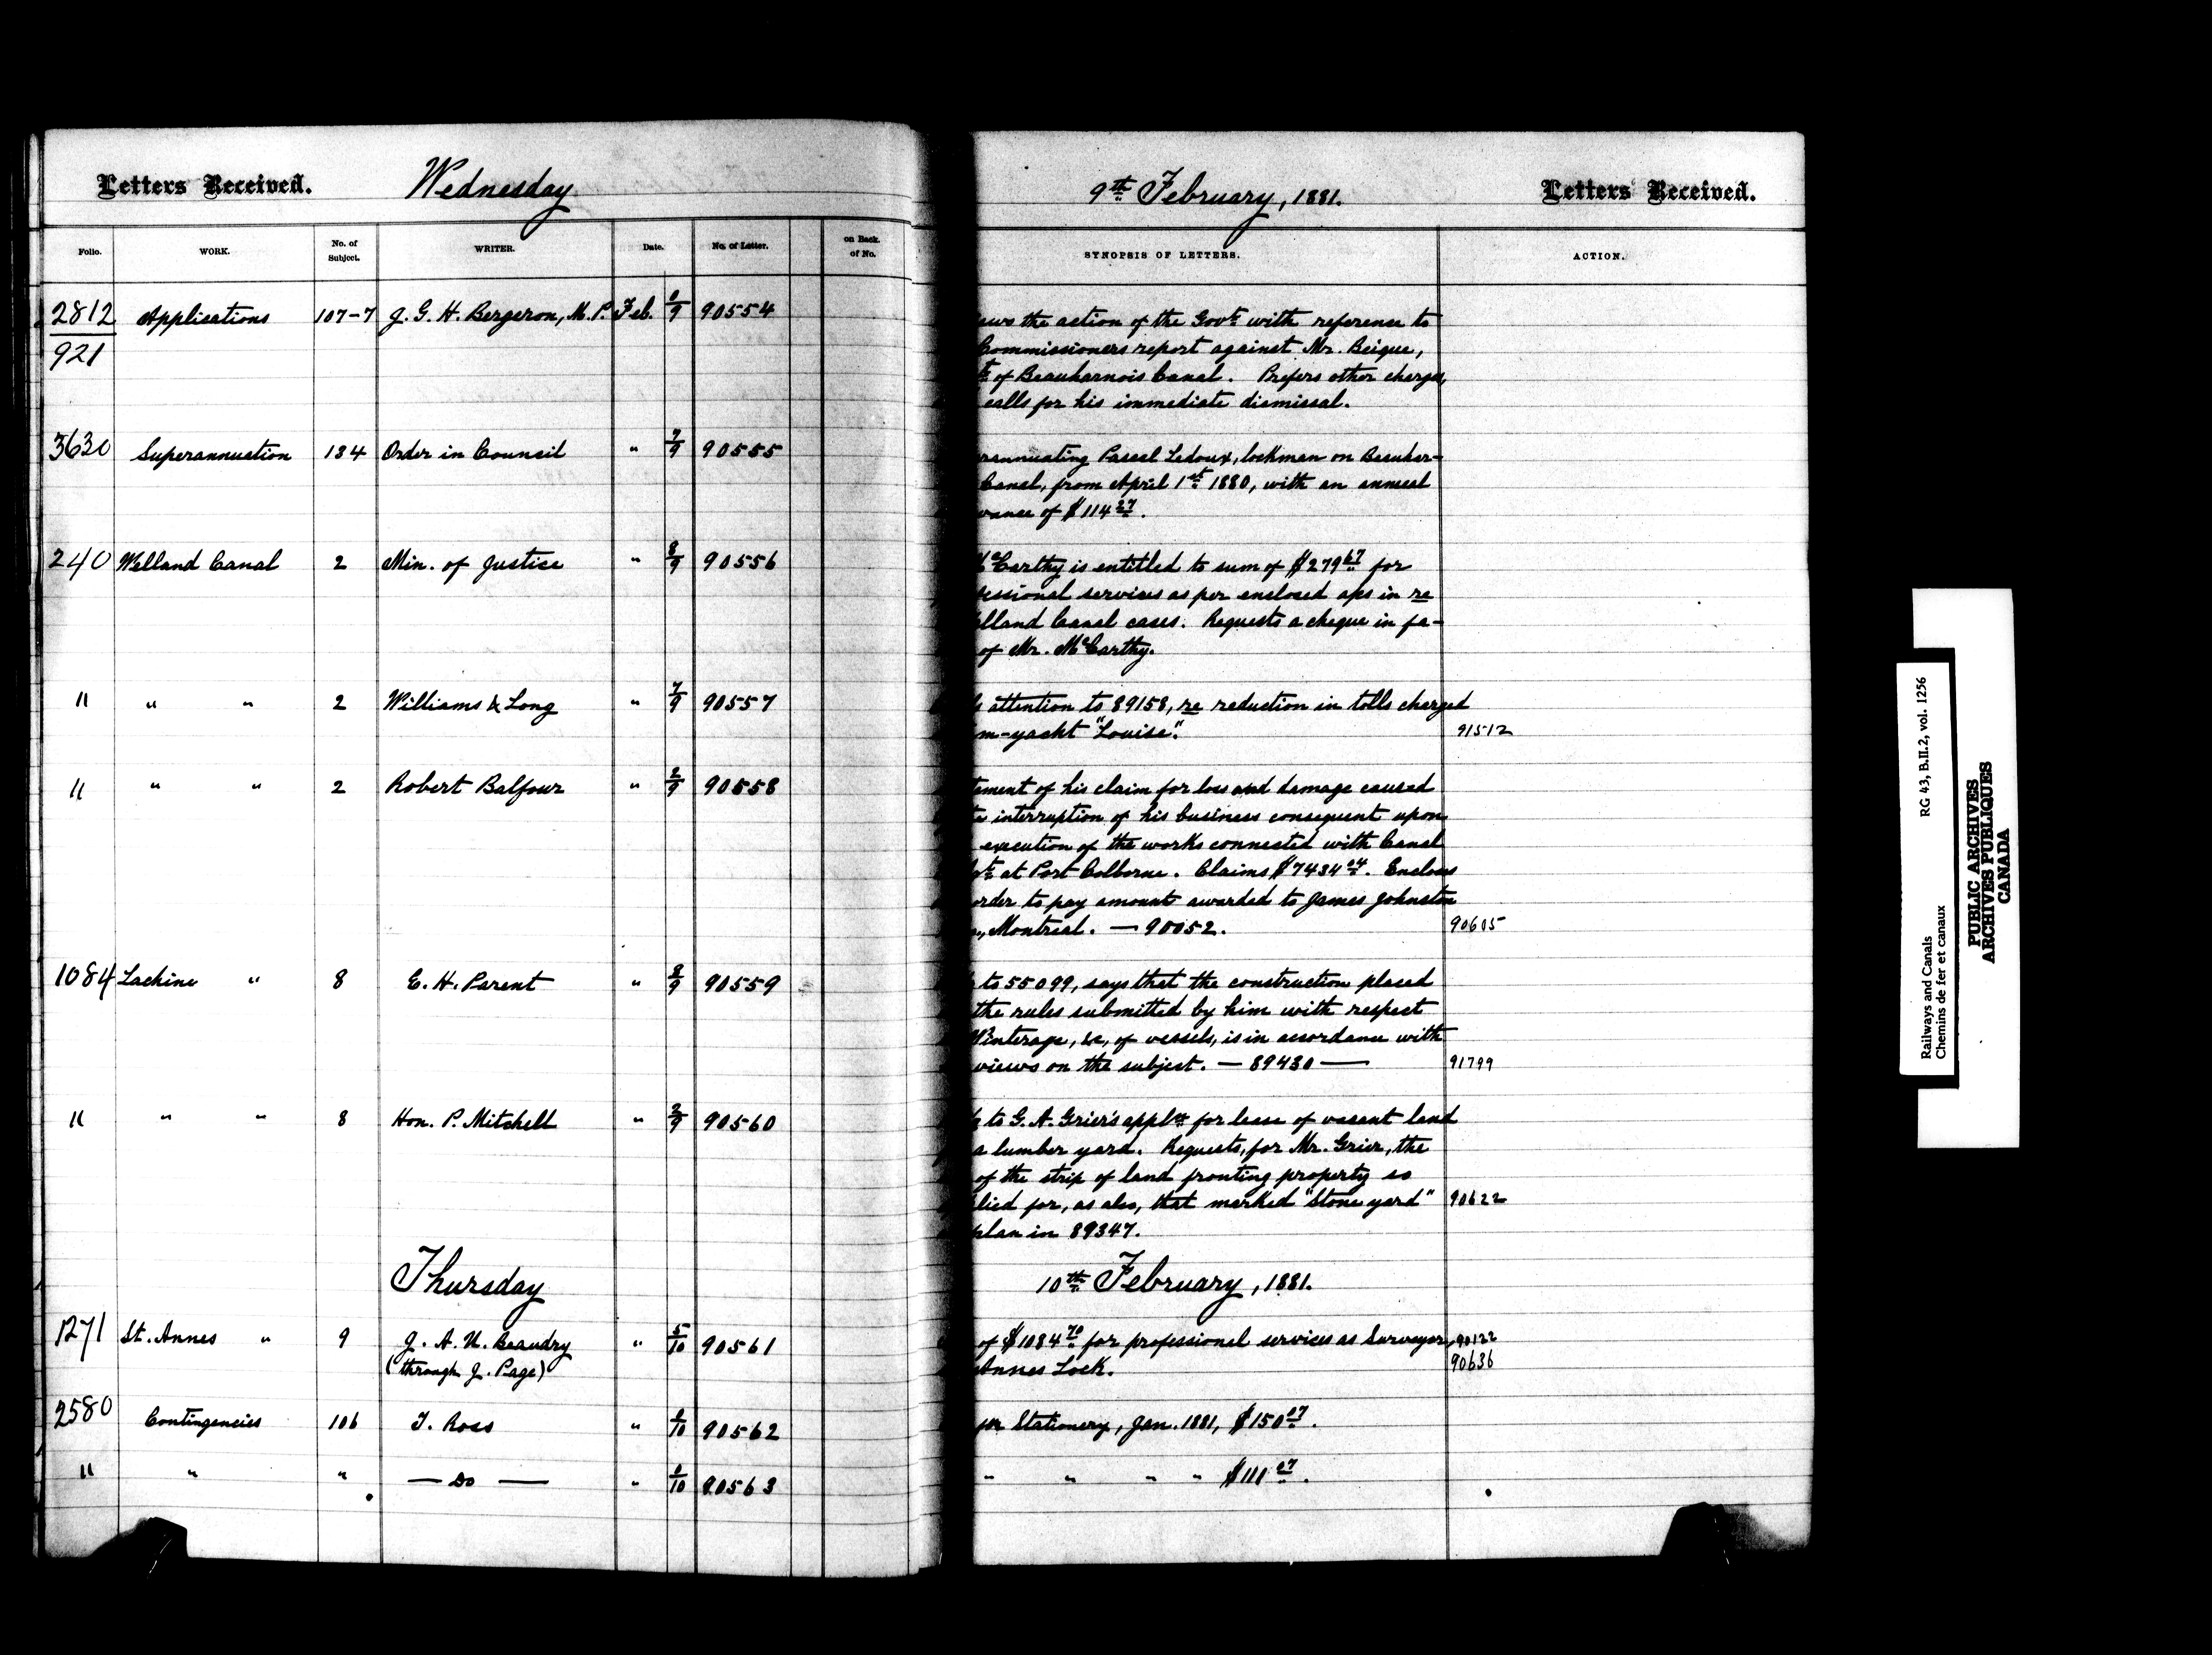 Letters Received. Wednesday
Folio. WORK. No. of Subject. WRITER. Date. No. of Letter. on Back. of No.
2812 Applications 107-7 J. G. H. Bergeron, M. P. Feb. 0/9 90554
921
3630 Superannuation 134 Order in Council " 7/9 90555
240 Welland Canal 2 Min. of Justice " 8/9 90556
" " " 2 Williams & Long " 7/9 90557
" " " 2 Robert Balfour " 2/9 90558
1084 Lachine " 8 E. H. Parent " 8/9 90559
" " " 8 Hon. P. Mitchell " 2/9 90560
Thursday
1271 St. Annes " 9 J. A. U. Beaudry " 5/10 90561
(through J. Page)
2580 Contingencies 106 T. Ross " 0/10 90562
" " " — Do — " 0/10 90563
9th February, 1881. Letters Received.
SYNOPSIS OF LETTERS. ACTION.
the action of the Govt. with reference to
Commissioners report against Mr. Beique,
of Beauharnois Canal. Prefers other charges,
calls for his immediate dismissal.
rannuating Pascal Ledoux, lockman on Beauhar-
Canal, from April 1st 1880, with an annual
wance of $114 27.
McCarthy is entitled to sum of $279 67 for
essional services as per enclosed a/cs in re
lland Canal cases. Requests a cheque in fa-
of Mr. McCarthy.
attention to 89158, re reduction in tolls charged
m-yacht "Louise". 91512
ement of his claim for loss and damage caused
interruption of his business consequent upon
execution of the works connected with Canal
at Port Colborne. Claims $7434 04. Encloses
order to pay amount awarded to James Johnston
, Montreal. — 90052. 90605
to 55099, says that the construction placed
the rules submitted by him with respect
Winterage, &c, of vessels, is in accordance with
views on the subject. — 89430 — 91799
to G. A. Grier's appln for lease of vacant land
a lumber yard. Requests, for Mr. Grier, the
of the strip of land fronting property so
lied for, as also, that marked "Stone yard" 90622
plan in 89347.
10th February, 1881.
of $1084 70 for professional services as Surveyor, 90122
Annes Lock. 90636
for Stationery, Jan. 1881, $150 07.
" " " " $111 07.
Railways and Canals RG 43, B.II.2, vol. 1256
Chemins de fer et canaux
PUBLIC ARCHIVES
ARCHIVES PUBLIQUES
CANADA